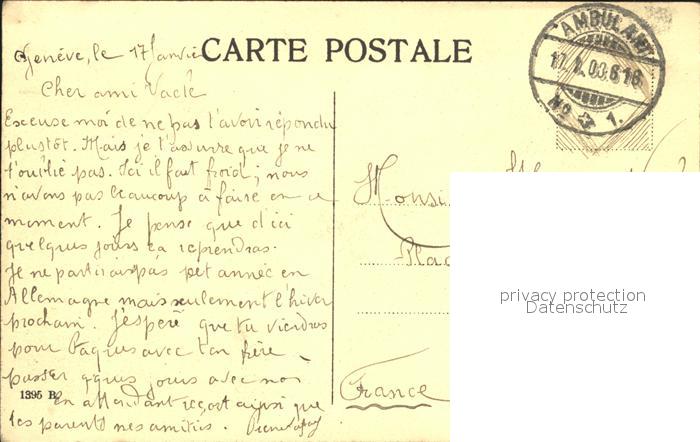 Genève, le 17 Janvier
CARTE POSTALE
AMBULANT
17.1.08.616
No 1.
Cher ami Vaclé
Excuse moi de ne pas t'avoir répondu
plustôt. Mais je t'assure que je ne
t'oublié pas. Ici il fait froid ; nous
n'avons pas beaucoup à faire en ce
moment. Je pense que d'ici
quelques jours ca reprendras.
Je ne partirais pas cet année en
Allemagne mais seulement l'hiver
prochain. J'espère que tu viendras
pour Paques avec ton frère
passer qques jours avec nos
en attendant reçoit ainsi que
tes parents nes amitiés.
Monsi
Plac
France
1395 B.
privacy protection
Datenschutz